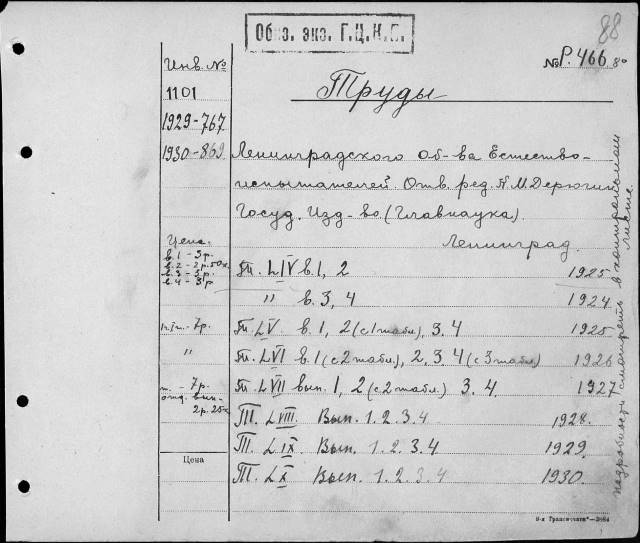 Обяз. экз. Г.Ц.К.П.
88
№ Р. 466. 8°
Инв. №
1101
1929-767
1930-869
Труды
Ленинградского Об-ва Естество-
испытателей. Отв. ред. К.М. Дерюгин
Госуд. Изд-во. (Главнаука).
Ленинград.
Цена.
в.1 - 3 р.
в.2 - 2 р. 50 к.
в.3 - 3 р.
в.4 - 3 р.
Т. LIV в. 1, 2 1925
" в. 3, 4 1924
7 р. Т. LV. в. 1, 2 (с 1 табл.), 3. 4 1925
" Т. LVI в. 1 (с 2 табл.), 2, 3. 4 (с 3 табл.) 1926
т. - 7 р.
отд. вып.
2 р. 25 к.
Т. LVII вып. 1, 2 (с 2 табл.) 3. 4. 1927
Т. LVIII. Вып. 1. 2. 3. 4 1928.
Т. LIX. Вып. 1. 2. 3. 4 1929.
Т. LX Вып. 1. 2. 3. 4 1930.
Цена
подробности смотреть в контрольном листе.